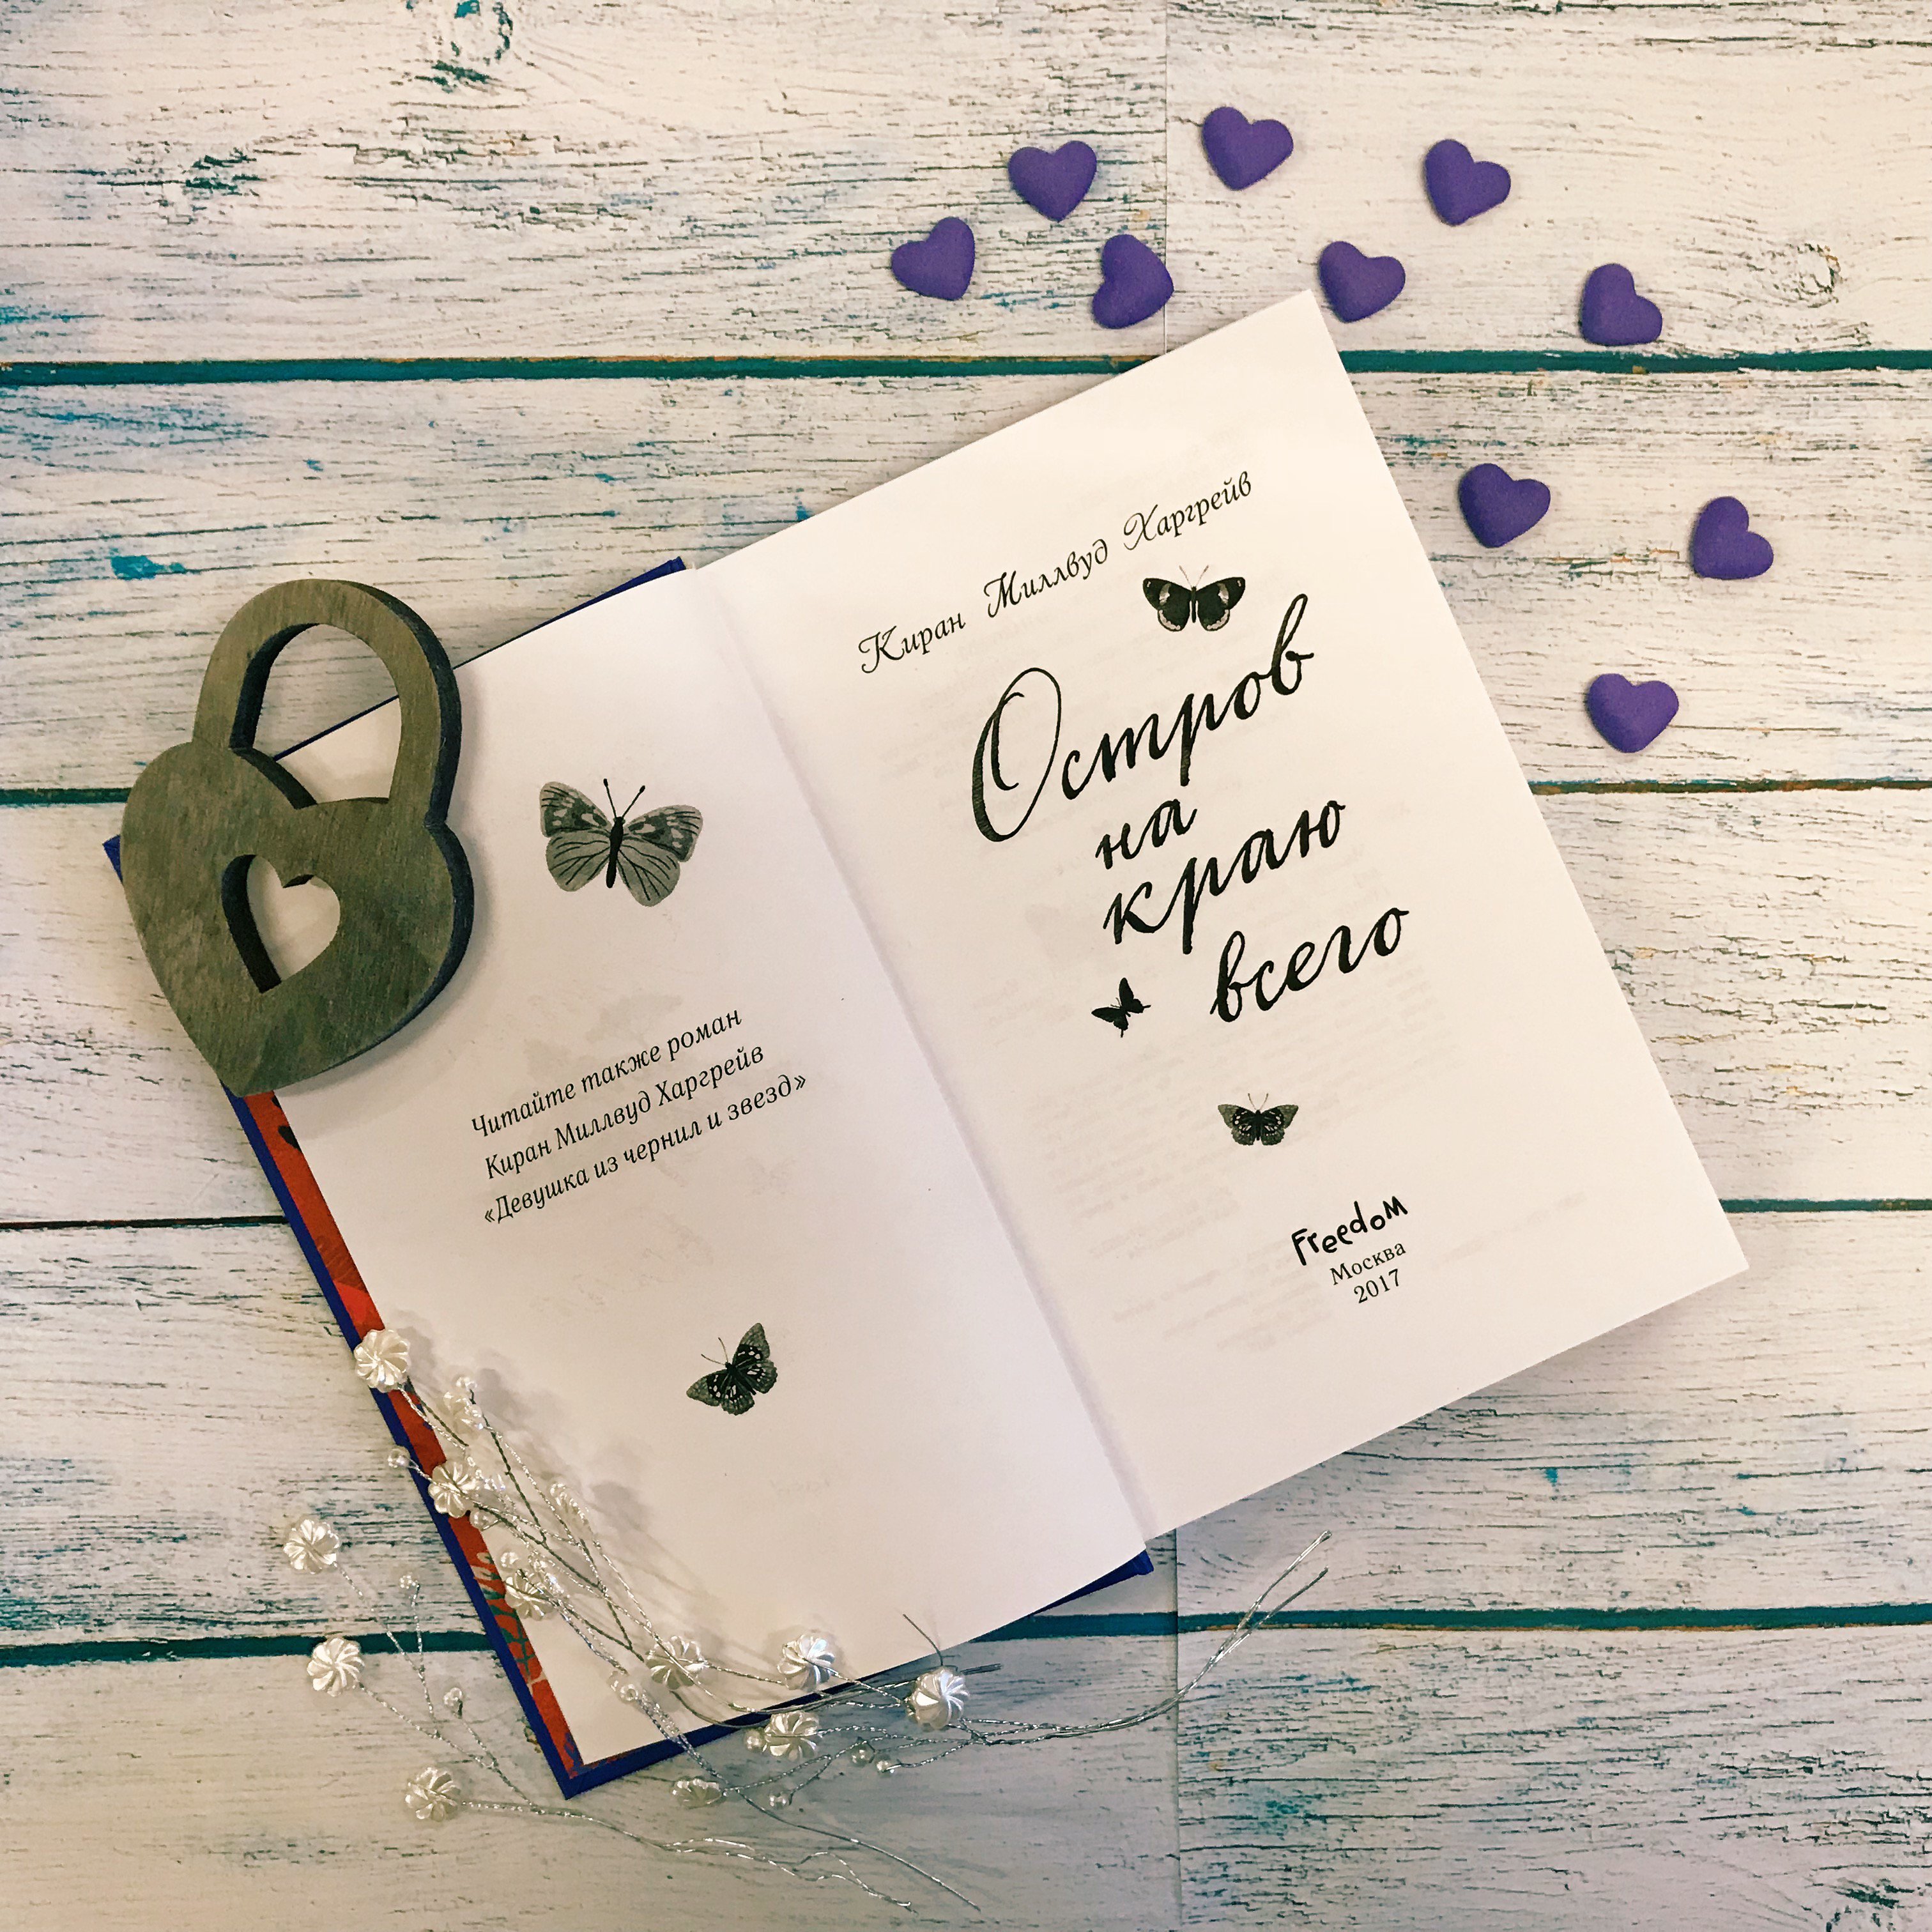 Читайте также роман
Киран Миллвуд Харгрейв
«Девушка из чернил и звезд»
Киран Миллвуд Харгрейв
Остров
на
краю
всего
Freedom
Москва
2017